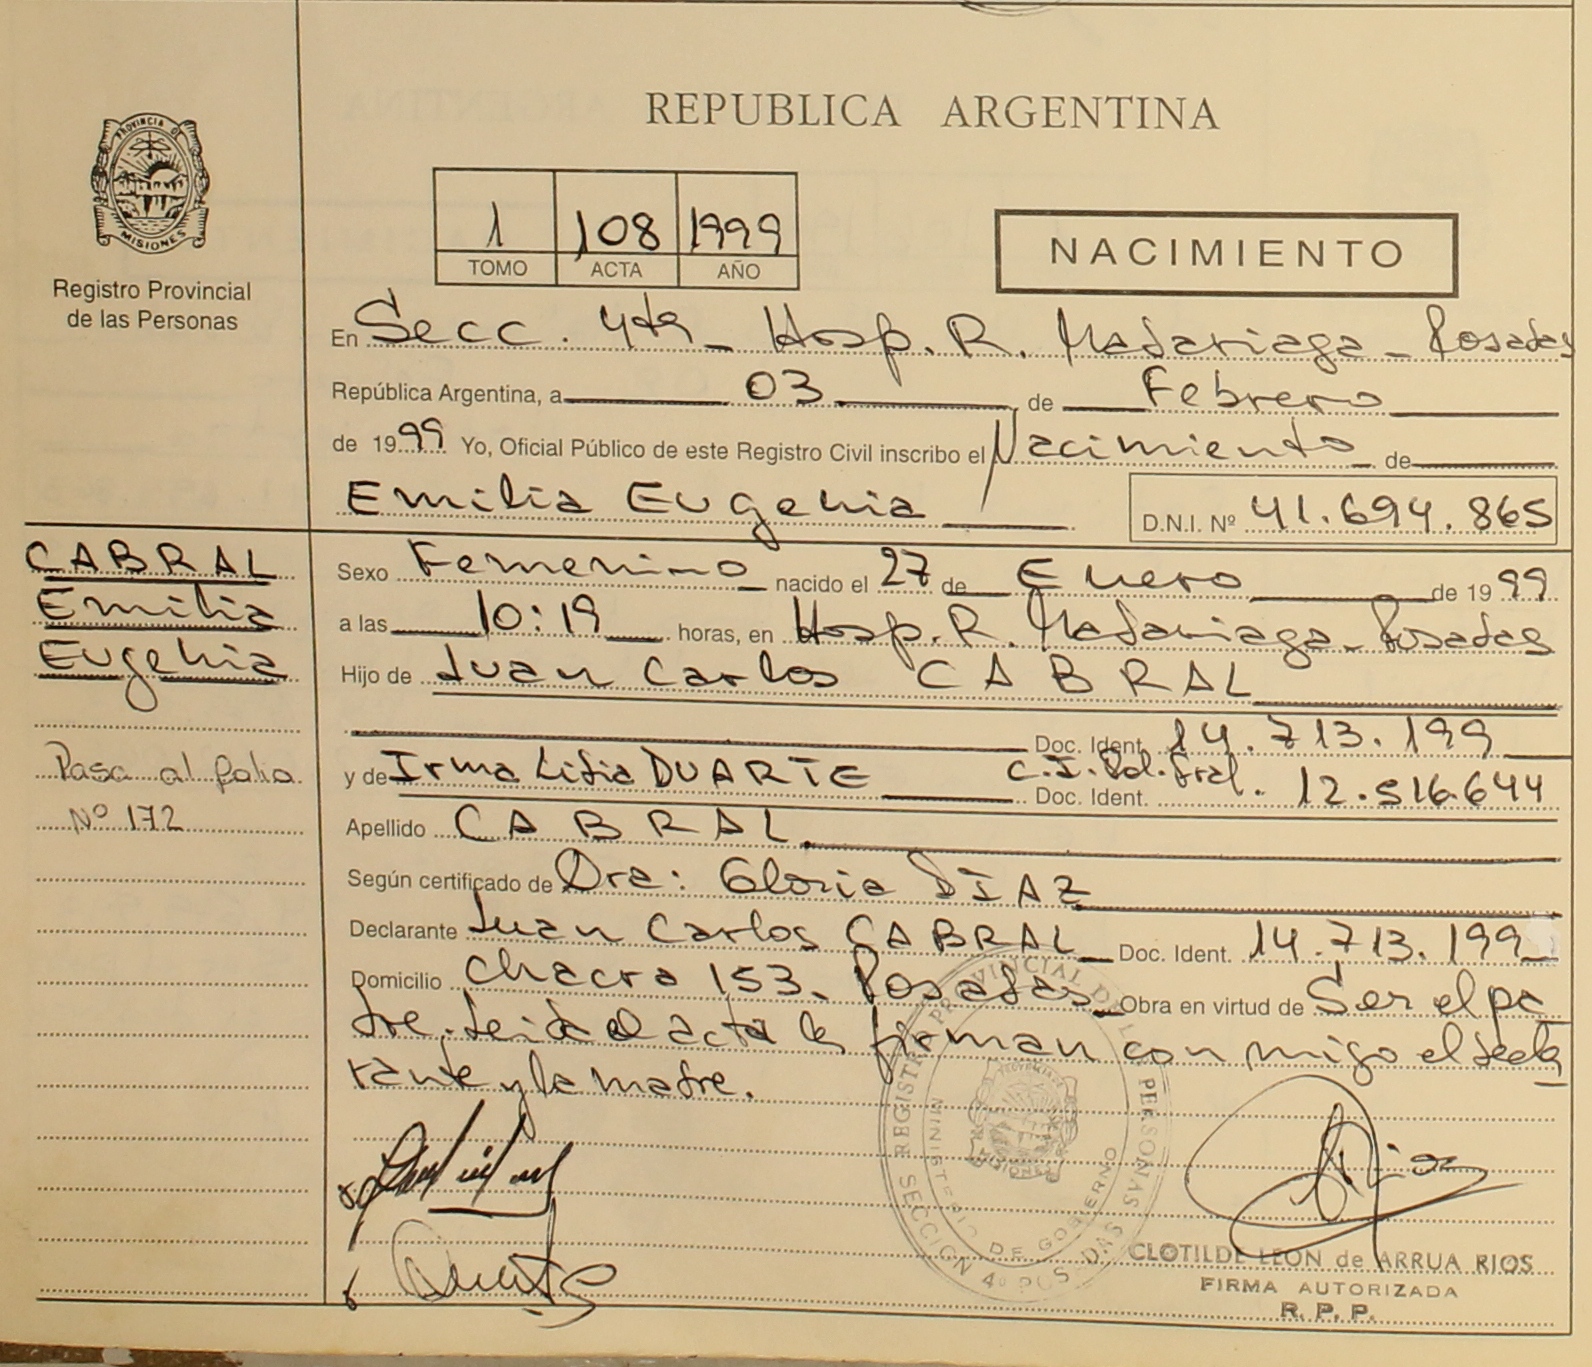 REPUBLICA ARGENTINA
PROVINCIA DE
MISIONES
Registro Provincial
de las Personas
1 108 1999
TOMO ACTA AÑO
NACIMIENTO
En Secc. 4ta - Hosp. R. Madariaga - Posadas
República Argentina, a 03 de Febrero
de 1999 Yo, Oficial Público de este Registro Civil inscribo el Nacimiento de
Emilia Eugenia D.N.I. Nº 41.694.865
CABRAL
Emilia
Eugenia
Pasa al folio
Nº 172
Sexo Femenino nacido el 27 de Enero de 1999
a las 10:19 horas, en Hosp. R. Madariaga - Posadas
Hijo de Juan Carlos CABRAL
Doc. Ident. 14.713.199
y de Irma Lidia DUARTE C.I. Pol. Fral. Doc. Ident. 12.516.644
Apellido CABRAL
Según certificado de Dra: Gloria DIAZ
Declarante Juan Carlos CABRAL Doc. Ident. 14.713.199
Domicilio Chacra 153 - Posadas Obra en virtud de Ser el pa
dre. Leida el acta la firman con migo el decla
rante y la madre.
REGISTRO PROVINCIAL DE LAS PERSONAS
MINISTERIO DE GOBIERNO
SECCION 4º POSADAS
CLOTILDE LEON de ARRUA RIOS
FIRMA AUTORIZADA
R. P. P.